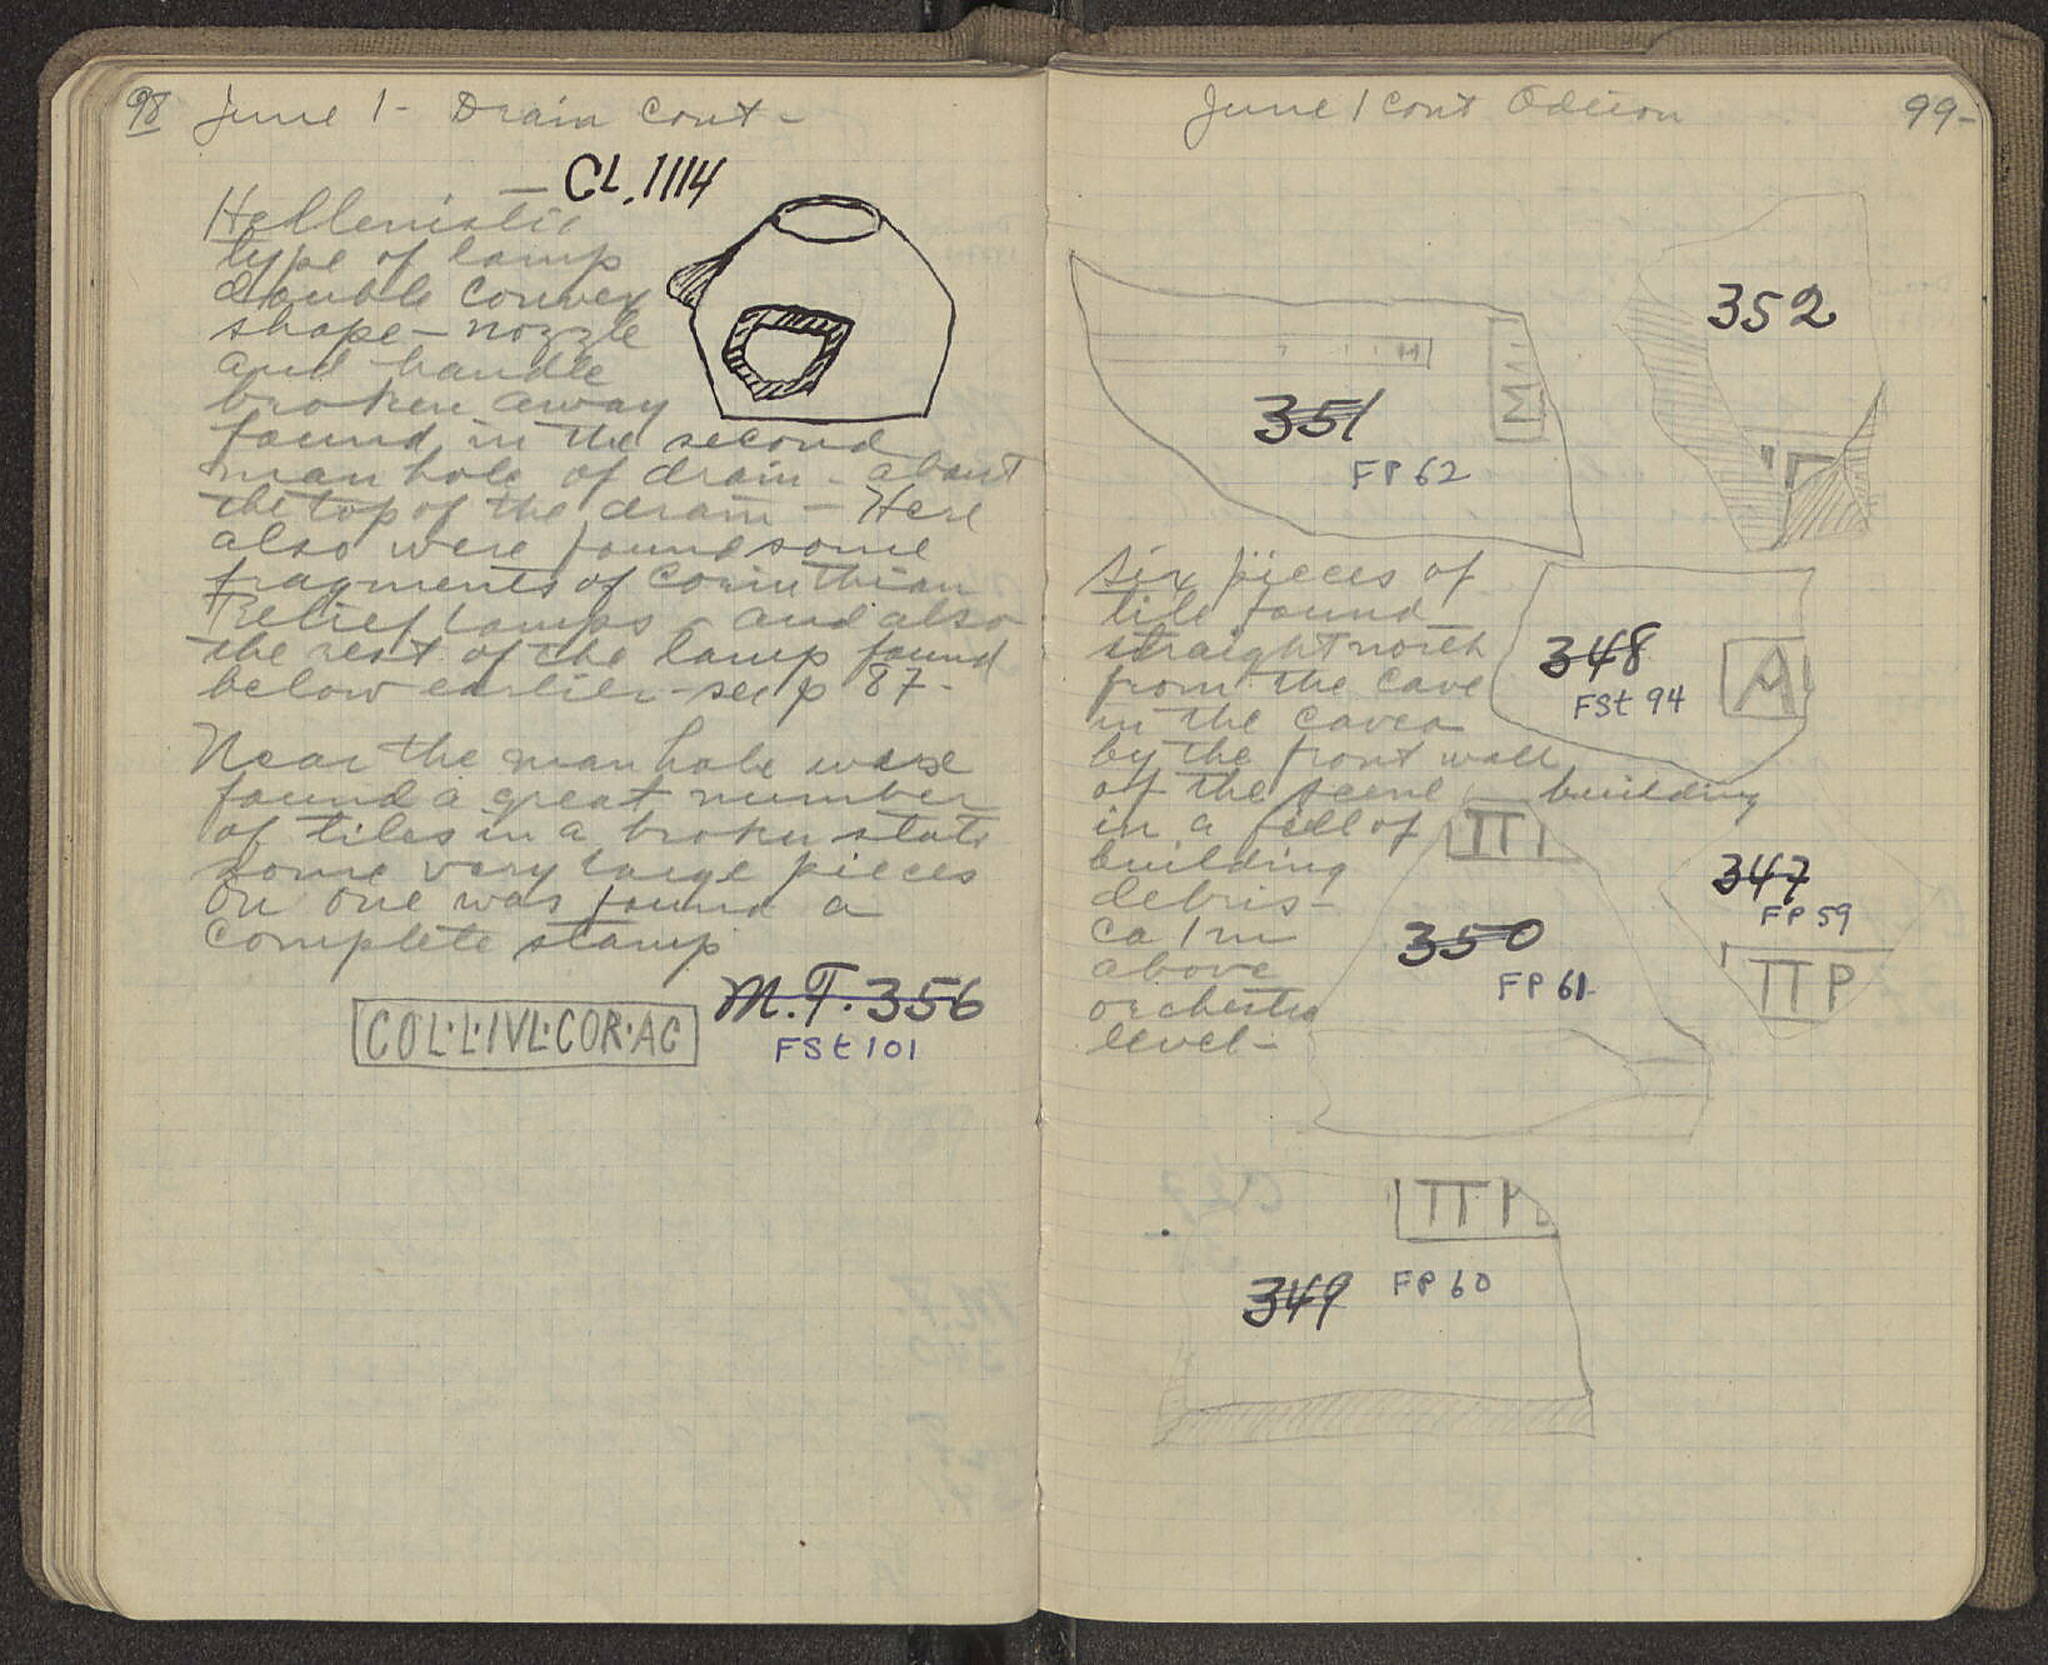 98 June 1 - Drain Cont -
CL.1114
Hellenistic
type of lamp
double convex
shape - nozzle
and handle
broken away
found in the second
man hole of drain - about
the top of the drain - Here
also were found some
fragments of Corinthian
Relief Lamps - and also
the rest of the lamp found
below earlier - see p 87 -
Near the man hole were
found a great number
of tiles in a broken state
some very large pieces
On one was found a
complete stamp
COL·L·IVL·COR·AC
M.T. 356
FSt 101
June 1 Cont Odeion 99-
352
351
FP 62
Six pieces of
tile found
straight north
from the cave
in the cavea
by the front wall
of the scene building
in a fill of
building
debris -
ca 1 m
above
orchestra
level -
348
FSt 94
A
ΠΙ
350
FP 61
347
FP 59
ΠΡ
349
FP 60